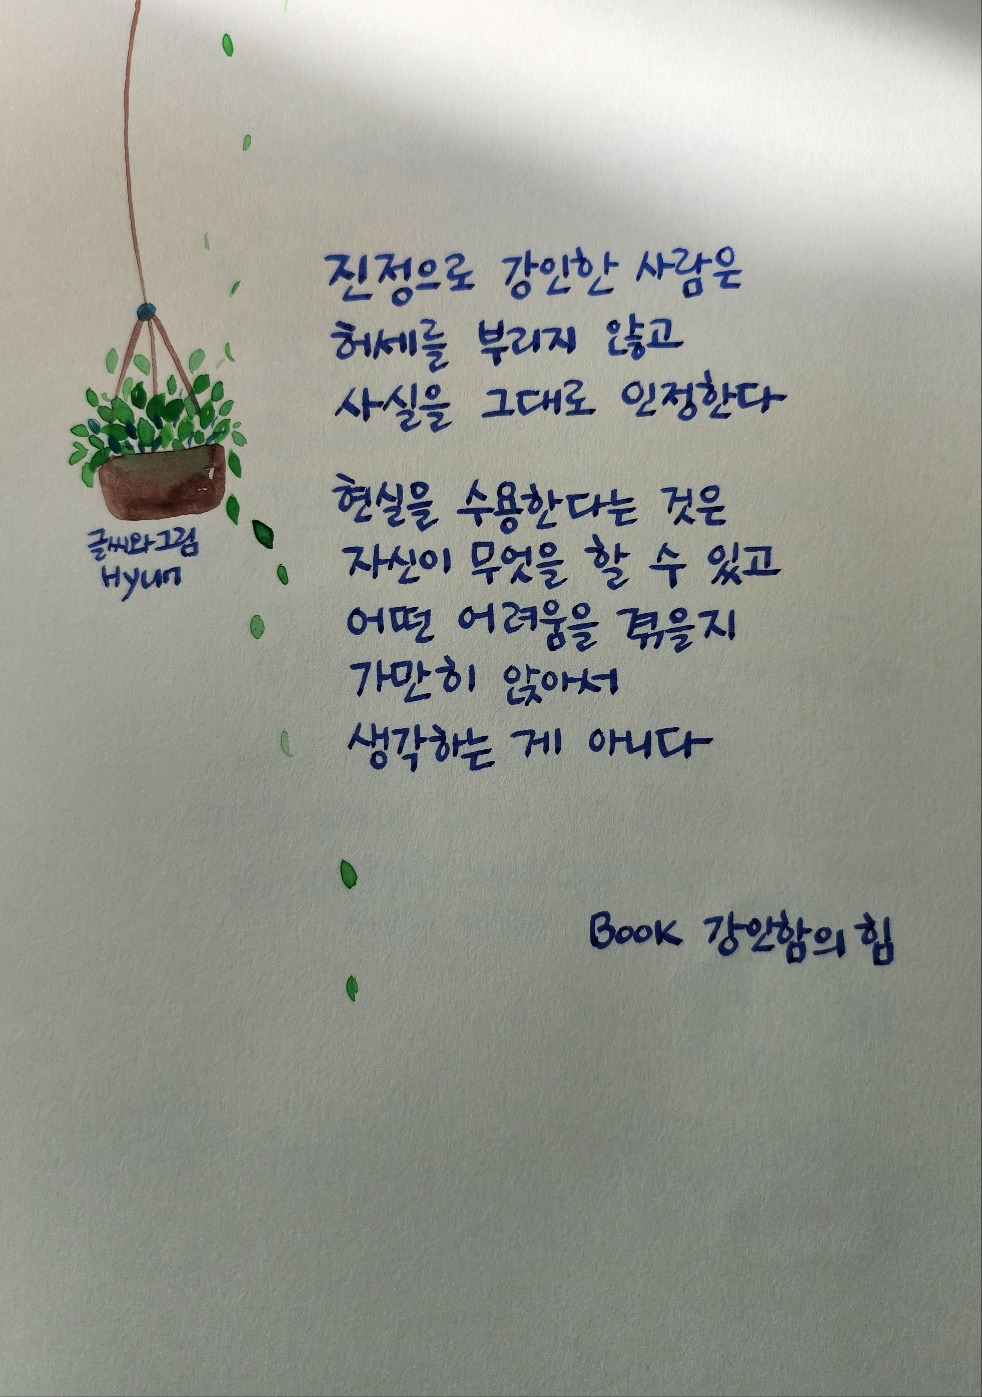 진정으로 강인한 사람은
허세를 부리지 않고
사실을 그대로 인정한다
현실을 수용한다는 것은
자신이 무엇을 할 수 있고
어떤 어려움을 겪을지
가만히 앉아서
생각하는 게 아니다
글씨와 그림
Hyun
Book 강인함의 힘